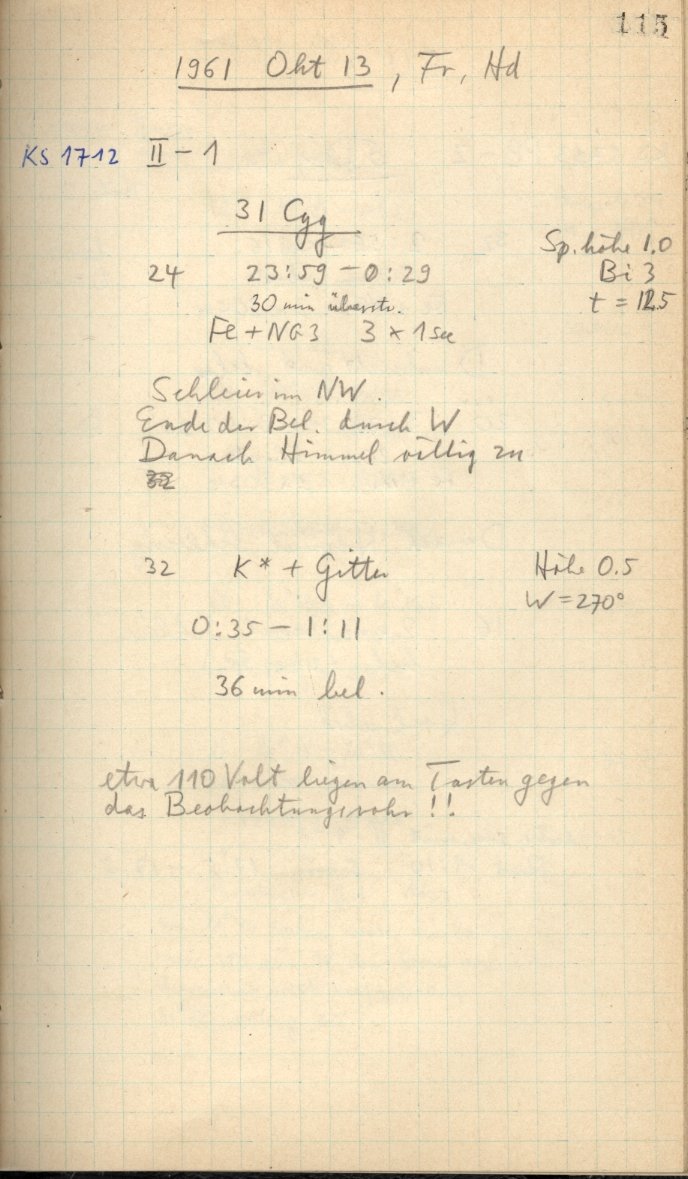 115
1961 Okt 13, Fr, Hd
KS 1712 II - 1
31 Cyg
Sp.höhe 1.0
24 23:59 - 0:29 Bi 3
30 min überstr. t = 12.5
Fe + NG3 3 × 1 sec
Schleier im NW.
Ende der Bel. durch W
Danach Himmel völlig zu
32 K* + Gitter Höhe 0.5
W = 270°
0:35 - 1:11
36 min bel.
etwa 110 Volt liegen am Tasten gegen
das Beobachtungsrohr !!